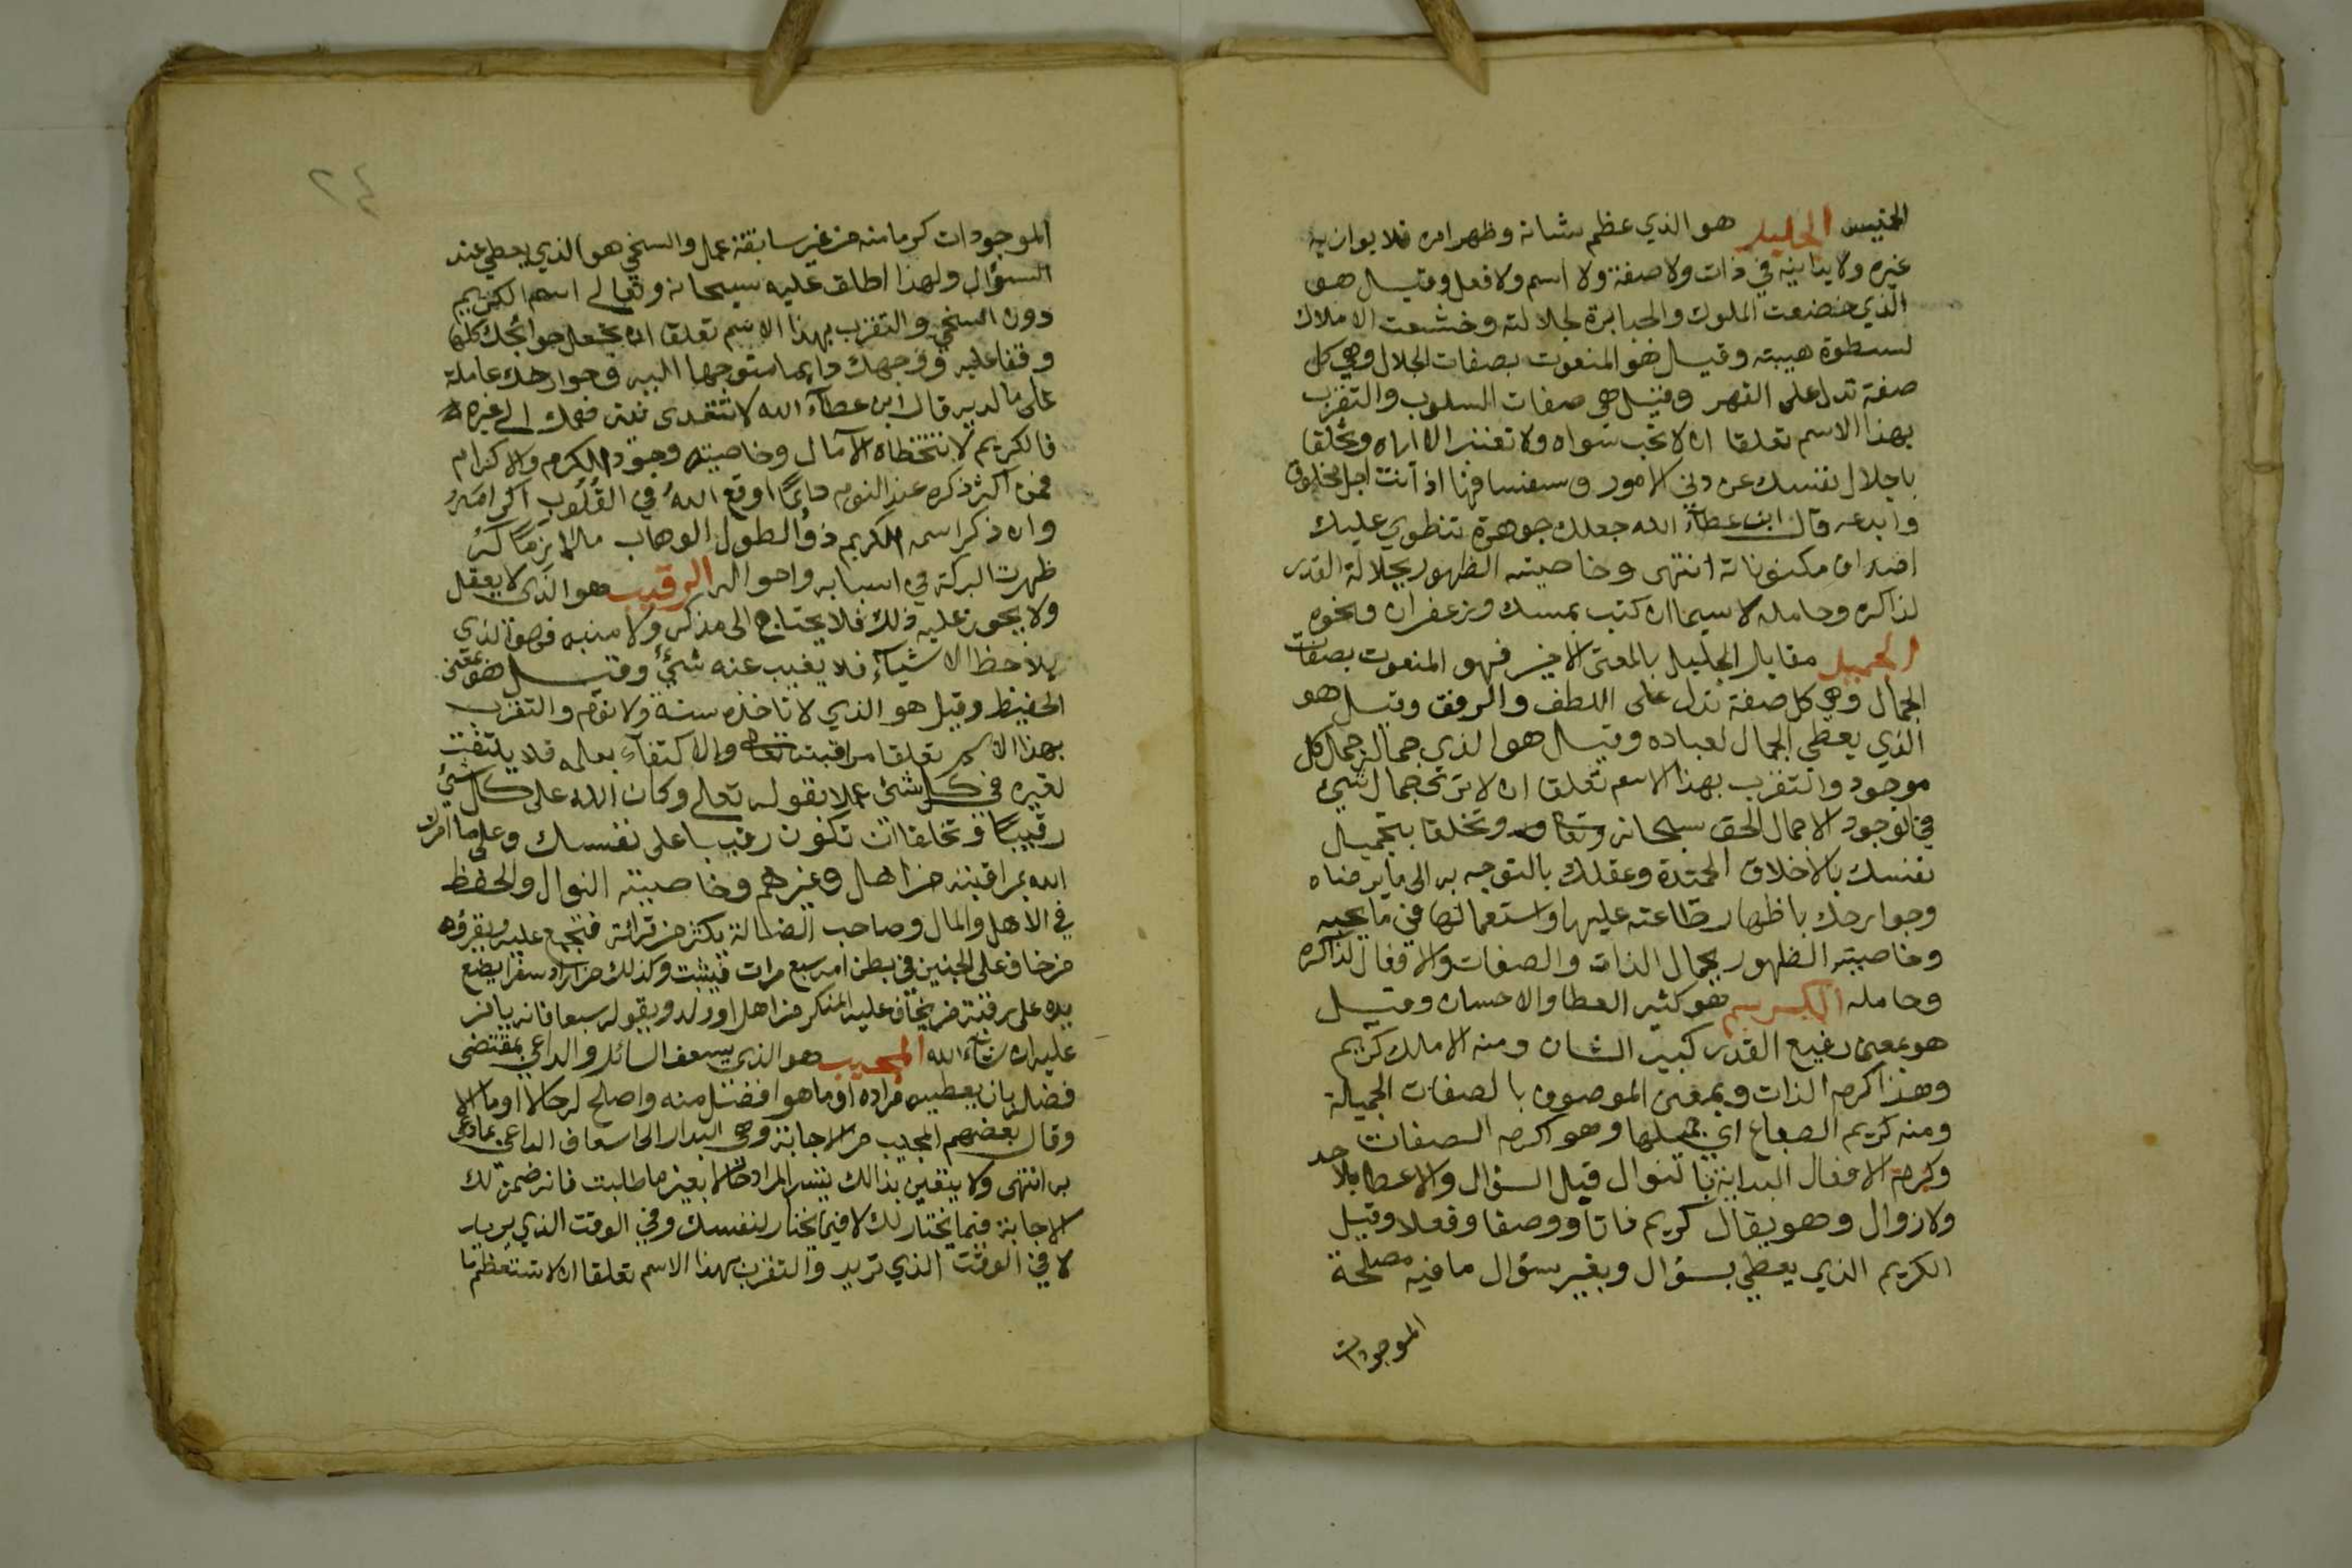 الجليل هو الذي عظم شانه وظهر امره فلا يوازيه
غيره ولا يدانيه في ذات ولا صفة ولا اسم ولا فعل وقيل هو
الذي خضعت الملوك والجبابرة لجلالته وخشعت الاملاك
لسطوة هيبته وقيل هو المنعوت بصفات الجلال وهي كل
صفة تدل على القهر وقيل هي صفات السلوب والتقرب
بهذا الاسم تعلقا ان لا تحب سواه ولا تعتبر الا اياه وتخلقا
باجلال نفسك عن دني الامور وسفسافها اذ انت اجل مخلوق
وابدعه قال ابن عطاء الله جعلك جوهرة تنطوي عليك
اصداف مكنوناته انتهى وخاصيته الظهور بجلالة القدر
لذاكره وحامله لا سيما ان كتب بمسك وزعفران ونحوه
الجميل مقابل الجليل بالمعنى الاخير فهو المنعوت بصفات
الجمال وهي كل صفة تدل على اللطف والرفق وقيل هو
الذي يعطي الجمال لعباده وقيل هو الذي جماله جمال كل
موجود والتقرب بهذا الاسم تعلق ان لا ترى جمال شيء
في الوجود الا جمال الحق سبحانه وتعالى وتخلقا بتجميل
نفسك بالاخلاق المحمدة وعقلك بالتوجه به الى ما يرضاه
وجوارحك باظهار طاعته عليها واستعمالها في ما يحبه
وخاصيته الظهور بجمال الذات والصفات والافعال لذاكره
وحامله الكريم هو كثير العطا والاحسان وقيل
هو بمعنى رفيع القدر كبير الشان ومنه الا ملك كريم
وهذا كرم الذات وبمعنى الموصوف بالصفات الجميلة
ومنه كريم الطباع اي جميلها وهو اكرم الصفات
وكرم الافعال البداية بالنوال قبل السؤال والاعطا بلا حد
ولا زوال وهو يقال كريم ذاتا ووصفا وفعلا وقيل
الكريم الذي يعطي بسؤال وبغير سؤال ما فيه مصلحة
الموجودات
٢٤
الموجودات كرما منه من غير سابقة عمل والسخي هو الذي يعطي عند
السؤال ولهذا اطلق عليه سبحانه وتعالى اسم الكريم
دون السخي والتقرب بهذا الاسم تعلقا ان تجعل حوائجك كلها
وقفا عليه ووجهك دايما متوجها اليه وجوارحك عاملة
على ما لديه قال ابن عطآء الله لا تتعدى همك الى غيره
فالكريم لا تتخطاه الآمال وخاصيته وجود الكرم والاكرام
فمن اكثر ذكره عند النوم دايمًا اوقع اللهُ في القُلُوب اكرامَهُ
وان ذكر اسمه الكريم ذو الطول الوهاب
ظهرت البركة في اسبابه واحواله الرقيب هو الذي لا يغفل
ولا يجوز عليه ذلك فلا يحتاج الى مذكر ولا منبه فهو الذي
يلاحظ الاشيآء فلا يغيب عنه شيء وقيل هو بمعنى
الحفيظ وقيل هو الذي لا تاخذه سنة ولا نوم والتقرب
بهذا الاسم تعلقا مراقبته تعالى والاكتفآء بعلمه فلا يلتفت
لغيره في كل شئ عملا بقوله تعالى وكان الله على كل شئ
رقيبًا وتخلقا ان تكون رقيبا على نفسك وعلى ما امرك
الله بمراقبته من اهل وغيرهم وخاصيته النوال والحفظ
في الاهل والمال وصاحب الضالة يكثر من قرائته فتجمع عليه ويقرؤه
من خاف على الجنين في بطن امه سبع مرات فيثبت وكذلك من اراد سفرا يضع
يده على رقبة من يخاف عليه المنكر من اهل او ولد ويقوله سبعا فانه يامن
عليه ان شاء الله المجيب هو الذي يسعف السائل والداعي بمقتضى
فضله بان يعطيه مراده او ما هو افضل منه واصلح له حالا او مالا
وقال بعضهم المجيب من الاجابة وهي البدار الى اسعاف الداعي بما دعى
به انتهى ولا يتعين بذالك تيسر المراد حالا بعين ما طلبت فانه ضمن لك
الاجابة فيما يختار لك لا فيما تختار لنفسك وفي الوقت الذي يريد
لا في الوقت الذي تريد والتقرب بهذا الاسم تعلقا ان لا تستعظم ما